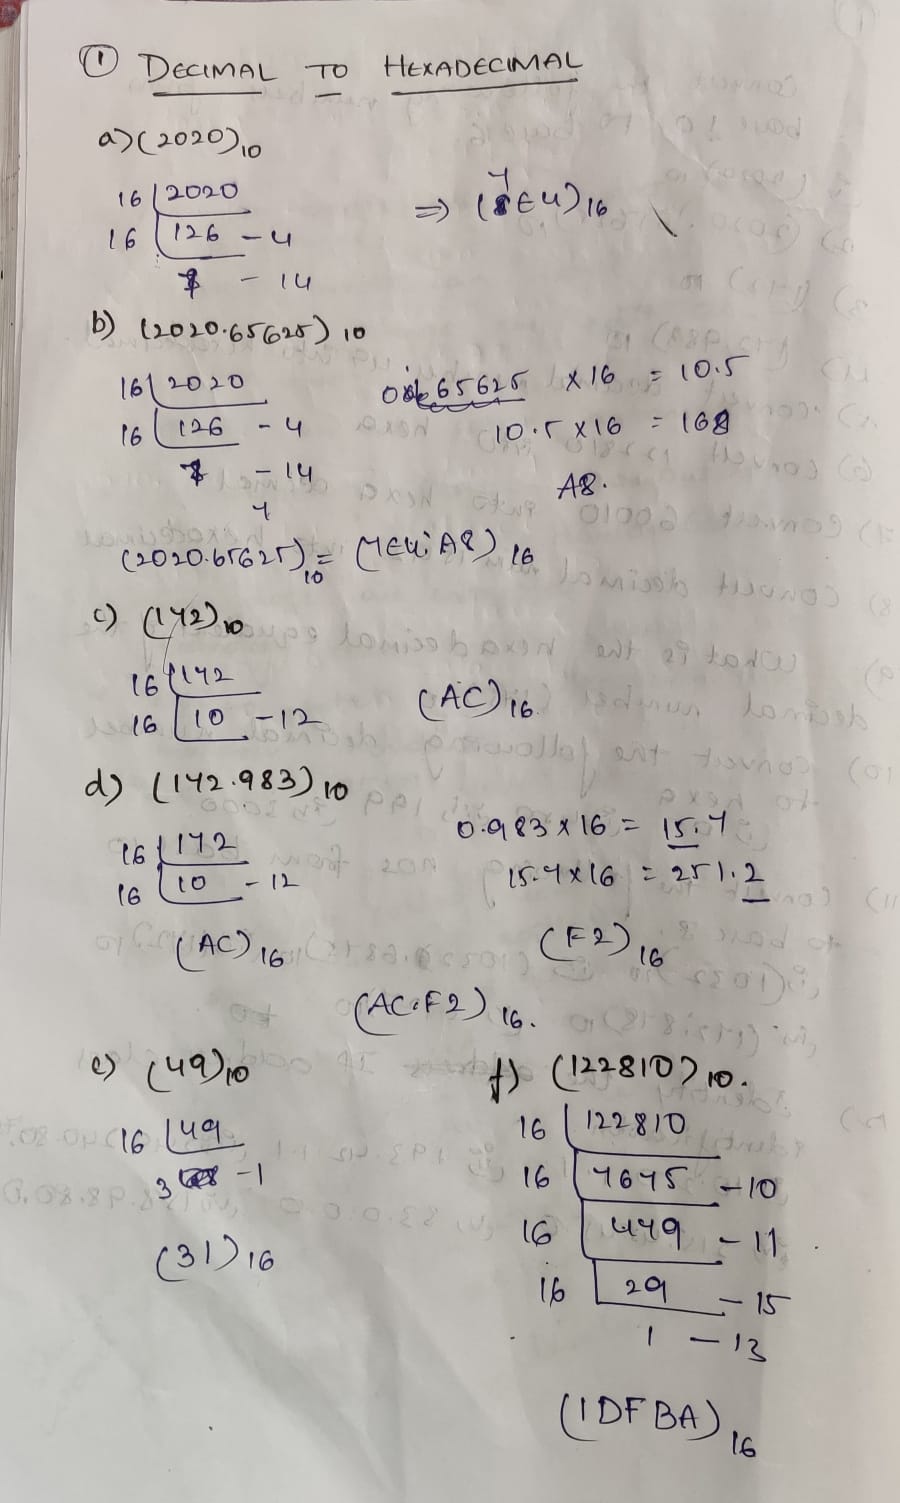 ① DECIMAL TO HEXADECIMAL
a) (2020)10
16 | 2020
16 | 126 - 4
7 - 14
⇒ (7E4)16
b) (2020.65625)10
16 | 2020
16 | 126 - 4
7 - 14
65625 × 16 = 10.5
10.5 × 16 = 168
A8.
(2020.65625)10 = (7E4.A8)16
c) (172)10
16 | 172
16 | 10 - 12
(AC)16
d) (172.983)10
16 | 172
16 | 10 - 12
(AC)16
0.983 × 16 = 15.7
15.7 × 16 = 251.2
(F2)16
(AC.F2)16.
e) (49)10
16 | 49
3 - 1
(31)16
f) (122810)10.
16 | 122810
16 | 7675 - 10
16 | 479 - 11
16 | 29 - 15
1 - 13
(1DFBA)16